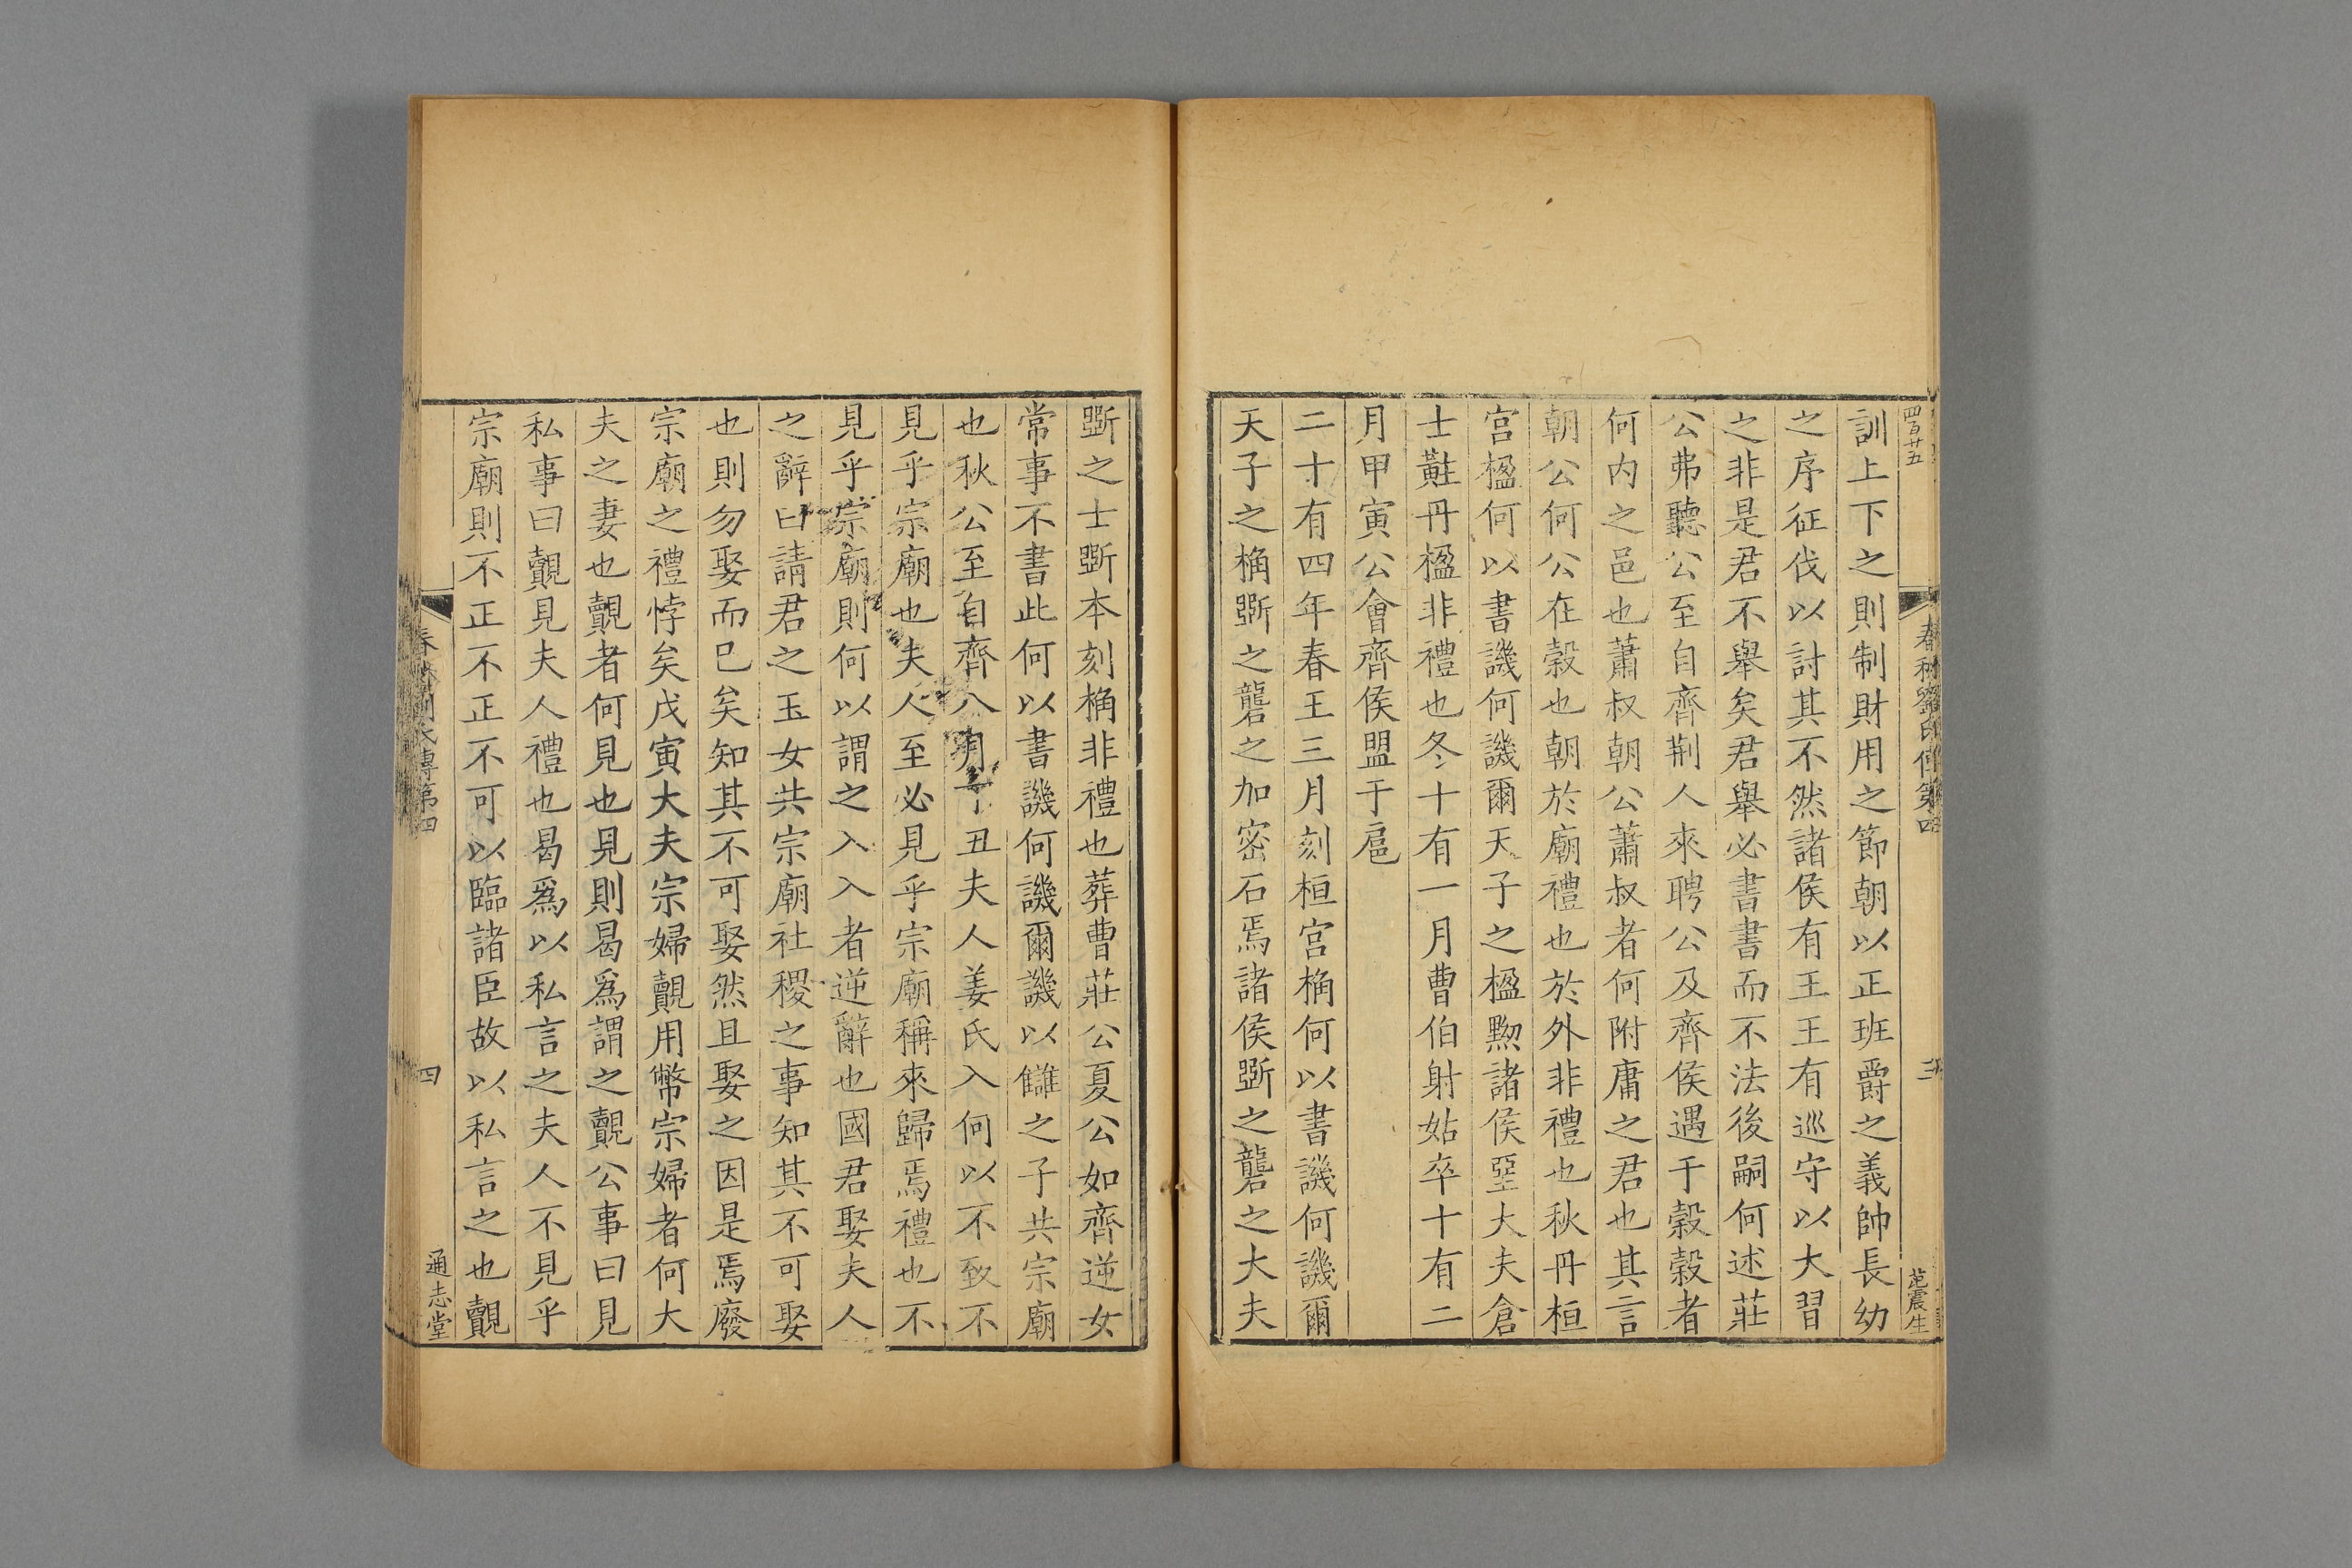 四百廿五
春秋劉氏傳第四
三
范震生
訓上下之則制財用之節朝以正班爵之義帥長幼
之序征伐以討其不然諸侯有王王有巡守以大習
之非是君不舉矣君舉必書書而不法後嗣何述莊
公弗聽公至自齊荆人來聘公及齊侯遇于穀穀者
何内之邑也蕭叔朝公蕭叔者何附庸之君也其言
朝公何公在穀也朝於廟禮也於外非禮也秋丹桓
宮楹何以書譏何譏爾天子之楹黝諸侯堊大夫倉
士黈丹楹非禮也冬十有一月曹伯射姑卒十有二
月甲寅公會齊侯盟于扈
二十有四年春王三月刻桓宮桷何以書譏何譏爾
天子之桷斲之礱之加密石焉諸侯斲之礱之大夫
斲之士斲本刻桷非禮也葬曹莊公夏公如齊逆女
常事不書此何以書譏何譏爾譏以讎之子共宗廟
也秋公至自齊八月丁丑夫人姜氏入何以不致不
見乎宗廟也夫人至必見乎宗廟稱來歸焉禮也不
見乎宗廟則何以謂之入入者逆辭也國君娶夫人
之辭曰請君之玉女共宗廟社稷之事知其不可娶
也則勿娶而已矣知其不可娶然且娶之因是焉廢
宗廟之禮悖矣戊寅大夫宗婦覿用幣宗婦者何大
夫之妻也覿者何見也見則曷爲謂之覿公事曰見
私事曰覿見夫人禮也曷爲以私言之夫人不見乎
宗廟則不正不正不可以臨諸臣故以私言之也覿
春秋劉氏傳第四
四
通志堂